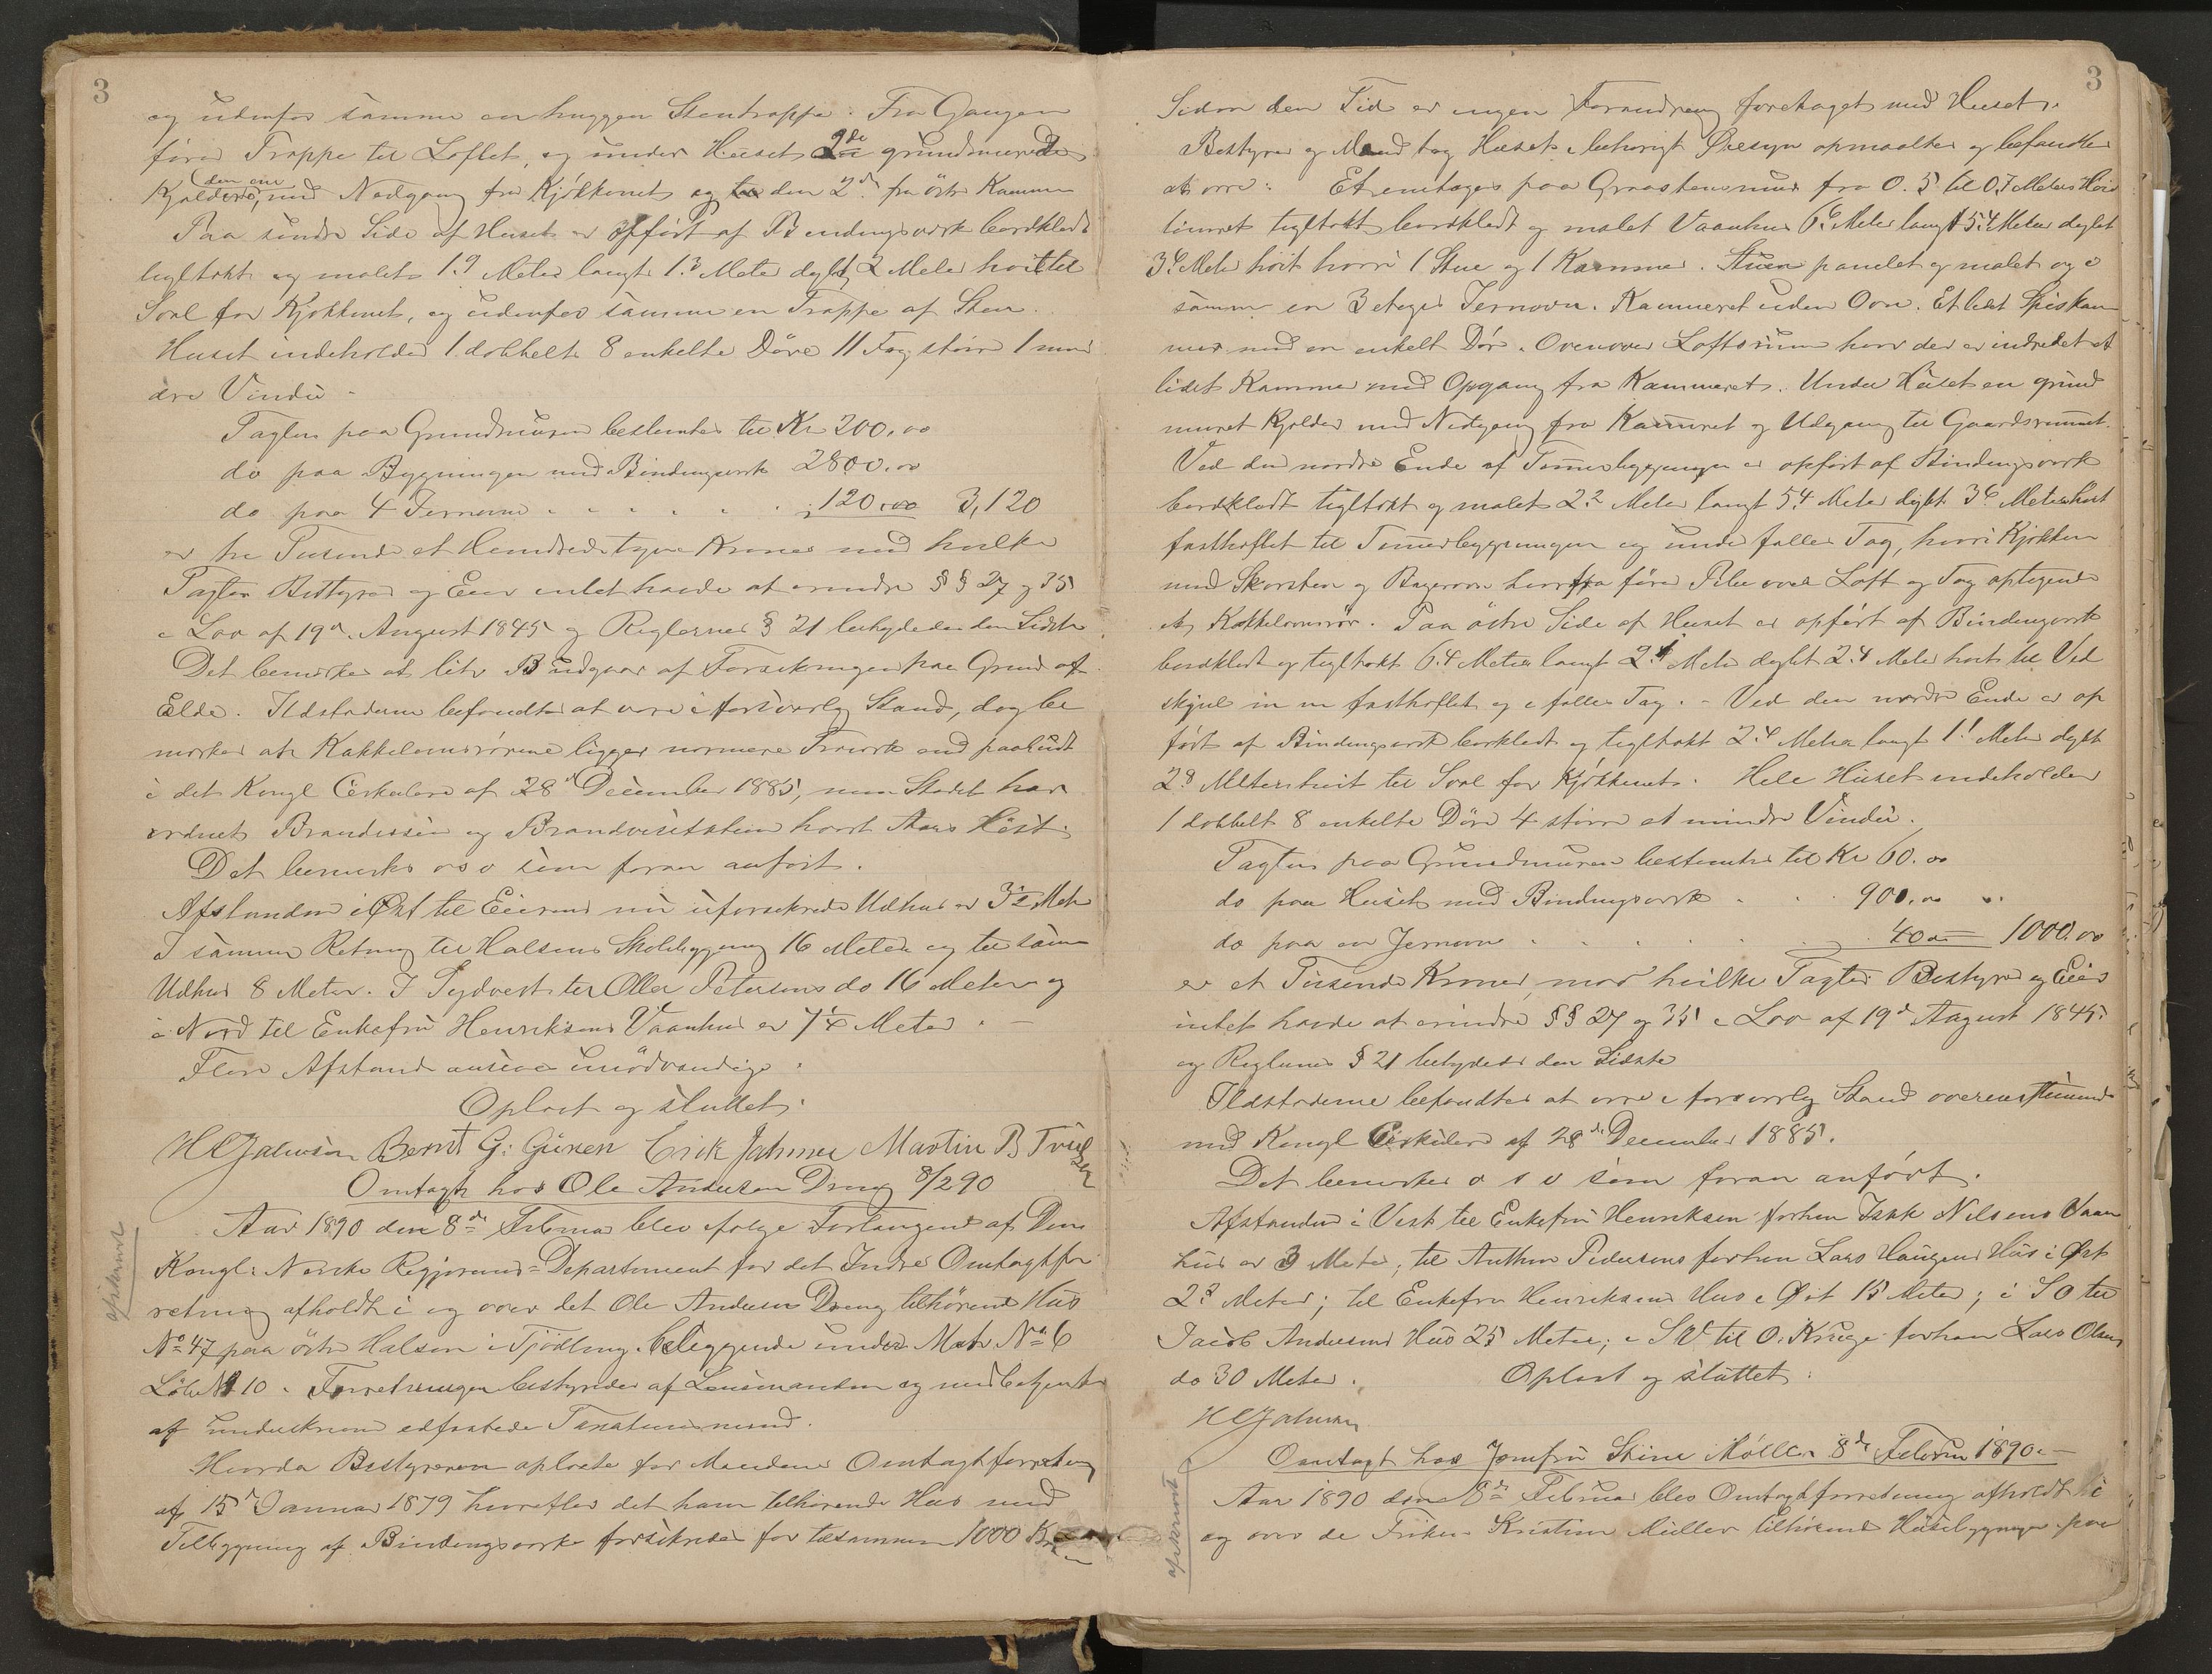 3
og udenfor samme en huggen Stentrappe. Fra Gangen
fører Trappe til Loftet, og under Huset 2de grundmurede
(den ene
Kjældere, med Nedgang fra Kjøkkenet og den 2den fra östre Kammer
Paa søndre Side af Huset er opført af Bindingsverk bordklædt
tegltækt og malet 1.9 Meter langt 1.3 Meter dybt, 2 Meter høit til
Sval for Kjøkkenet, og udenfor samme en Trappe af Sten.
Huset indeholder 1 dobbelt 8 enkelte Döre 11 Fag större 1 min
dre Vindu -
Taxten paa Grundmuren bestemtes til Kr 200.00
do paa Bygningen med Bindingsverk 2800.00
do paa 4 Jernovne - - - - - 120.00 3,120
er tre Tusende et Hundrede tyve Kroner mod hvilke
Taxter Bestyrer og Eier intet havde at erindre §§ 27 g 35
i Lov af 19de August 1845 og Reglernes § 21 betydedes den Sidste
Det bemærkes at litr B udgaar af Forsikringen paa Grund af
Elde. Ildstederne befandtes at være i forsvarlig Stand, dog be
mærkes at Kakkelovnsrörene ligger nærmere Træverk end paabudt
i det Kongl Cirkulære af 28de December 1885, men Stedet har
ordnet Brandvæsen og Brandvisitation hvert Aars Höst.
Det bemærkes o s v som foran anført.
Afstanden i Øst til Eierens nu uforsikrede Udhus er 3½ Meter
I samme Retning til Halsens Skolebygning 16 Meter og til samme
Udhus 8 Meter. I Sydvest til Oller Petersens do 16 Meter og
i Nord til Enkefru Henriksens Vaanhus er 7¼ Meter. -
Flere Afstande ansees unödvendige.
Oplæst og sluttet.
H C Jahnsen Bernt G: Gúren Erik Jahnsen Martin B Tveı̈tzen
Omtaxt hos Ole Andersen Dreng 8/2 90
afskrevet
Aar 1890 den 8de Februar blev ifølge Forlangende af Den
Kongl: Norske Regjerings-Departement for det Indre Omtaxtfor
retning afholdt i og over det Ole Andersen Dreng tilhörende Hus
No 47 paa östre Halsen i Tjödling beliggende under Matr No 6
Löbe No 10. Forretningen bestyredes af Lensmanden og med betjent
af underskrevne edfæstede Taxationsmænd.
Hvorda Bestyreren oplæste for Mændene Omtaxtforretning
af 15de Januar 1879 hvorefter det ham tilhørende Hus med
Tilbygning af Bindingsverk forsikredes for tilsammen 1000 Kroner
3
Siden den Tid er ingen Forandring foretaget med Huset.
Bestyrer og Mænd tog Huset i behørigt Øiesyn opmaaltes og befandtes
at være: Et enetages paa Graastensmur fra 0.5 til 0.7 Meters Høide
tömret tegltækt bordklædt og malet Vaanhus 6.6 Meter langt 5.4 Meter dybt
3.6 Meter höit hvori 1 Stue og 1 Kammer. Stuen panelet og malet og i
samme en 3 etages Jernovn. Kammeret uden Ovn. Et lidet Spiskam
mer med en enkelt Dör. Ovenover Loftsrum hvor der er indredet et
lidet Kammer med Opgang fra Kammeret. Under Huset en grund
muret Kjælder med Nedgang fra Kammeret og Udgang til Gaardsrummet.
Ved den nordre Ende af Tømmerbygningen er opført af Bindingsverk
bordklædt tegltækt og malet 2.2 Meter langt 5.4 Meter dybt 3.6 Meter höit
fasthæftet til Tømmerbygningen og under fælles Tag, hvori Kjøkken
med Skorsten og Bagerovn hvorfra fører Pibe over Loft og Tag optagende
et Kakkelovnsrör. Paa östre Side af Huset er opfört af Bindingsverk
bordklædt og tegltækt 6.4 Meter langt 2.1 Meter dybt 2.4 Meter höit til Ved
skjul m m fasthæftet og i fælles Tag. - Ved den nordre Ende er op
fört af Bindingsverk bordklædt og tegltækt 2.4 Meter langt 1.1 Meter dybt
2.8 Meter höit til Sval for Kjökkenet. Hele Huset indeholder
1 dobbelt 8 enkelte Döre 4 större et mindre Vindu.
Taxten paa Grundmuren bestemtes til Kr 60.00
do paa Huset med Bindingsverk - - 900.00
do paa en Jernovn - - - - 40.00 1000.00
er et Tusende Kroner, mod hvilke Taxter Bestyrer og Eier
intet havde at erindre §§ 27 og 35 i Lov af 19de August 1845
og Reglernes § 21 betydedes den Sidste
Ildstederne befandtes at være i forsvarlig Stand overensstemmende
med Kongl Cirkulære af 28de December 1885.
Det bemærkes o s v som foran anfört.
Afstanden i Vest til Enkefru Henriksen forhen Isak Nilsens Vaan
hus er 3 Meter; til Anthon Pedersens forhen Lars Haugens Hus i Øst
2.8 Meter; til Enkefru Henriksens Hus i Øst 15 Meter; i SO til
Jacob Andersens Hus 25 Meter; i SV til O. Kruge forhen Lars Olsens
do 30 Meter. Oplæst og sluttet:
H C Jahnsen
Omtaxt hos Jomfru Stine Möller 8de Februar 1890. -
afskrevet
Aar 1890 den 8de Februar blev Omtaxtforretning afholdt i
og over de Fröken Kristine Müller tilhørende Husebygninger paa